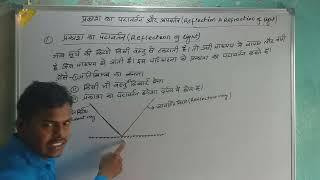 प्रकाश का परावर्तन और अपवर्तन (Reflection & Refraction of light)
① प्रकाश का परावर्तन (Reflection of light)
जब सूर्य की किरणें किसी वस्तु से टकराती है। तो उसी माध्यम में वापस लौट जाती
है जिस माध्यम से आती है। इस घटना को प्रकाश का परावर्तन कहते हैं।
जैसे- प्रतिबिम्ब का बनना।
किसी भी वस्तु दिखाई देना
प्रकाश का परावर्तन हमेशा दर्पण में होता है।
(Reflection ray)
ray)